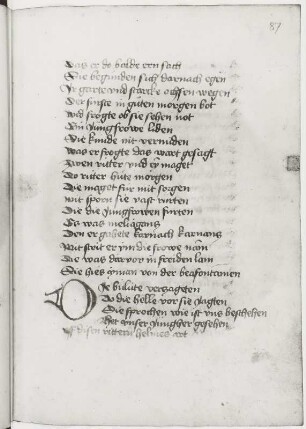 87
Das er do balde ern sach
Sie begunden sich darnach regen
In garte vnd straide offen wegen
Der furste in guten morgen bot
vnd fragte ob sie sehen not
Ein Jungfrowe liden
Sie kunde nit vermiden
was er fragte das wart gesagt
zwen ritter vnd ein maget
Do ritter hute morgen
Die maget fur mit sorgen
mit sporn sie vast ruten
Die die Jungfrowen furten
Es was meliaganz
Den er gabete karnach karnans
Mit strit er ym die frowe nam
Die was dar vor in freiden lam
Sie hies yman von der beafontanen
Die bilute verzageten
Do die helle vor sie Jagten
Die sprachen wie ist vns beschehen
Het vnser Jungher gesehen
disen rittern helmes art